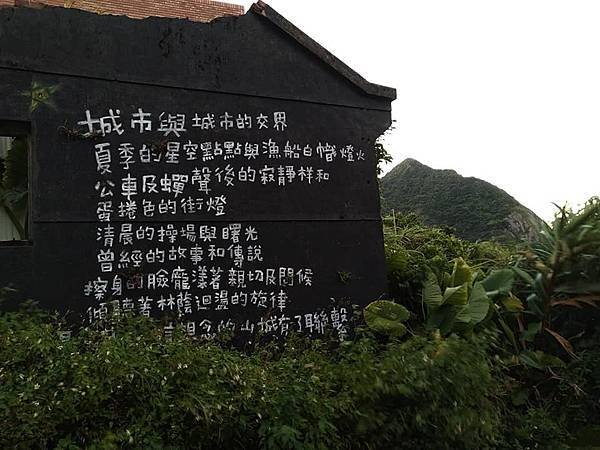 城市與城市的交界
夏季的星空點點與漁船白幟燈火
公車及蟬聲後的寂靜祥和
蛋捲色的街燈
清晨的操場與曙光
曾經的故事和傳說
擦身的臉龐漾著親切及問候
傾聽著林蔭迴溫的旋律
想念的山城有了聯繫